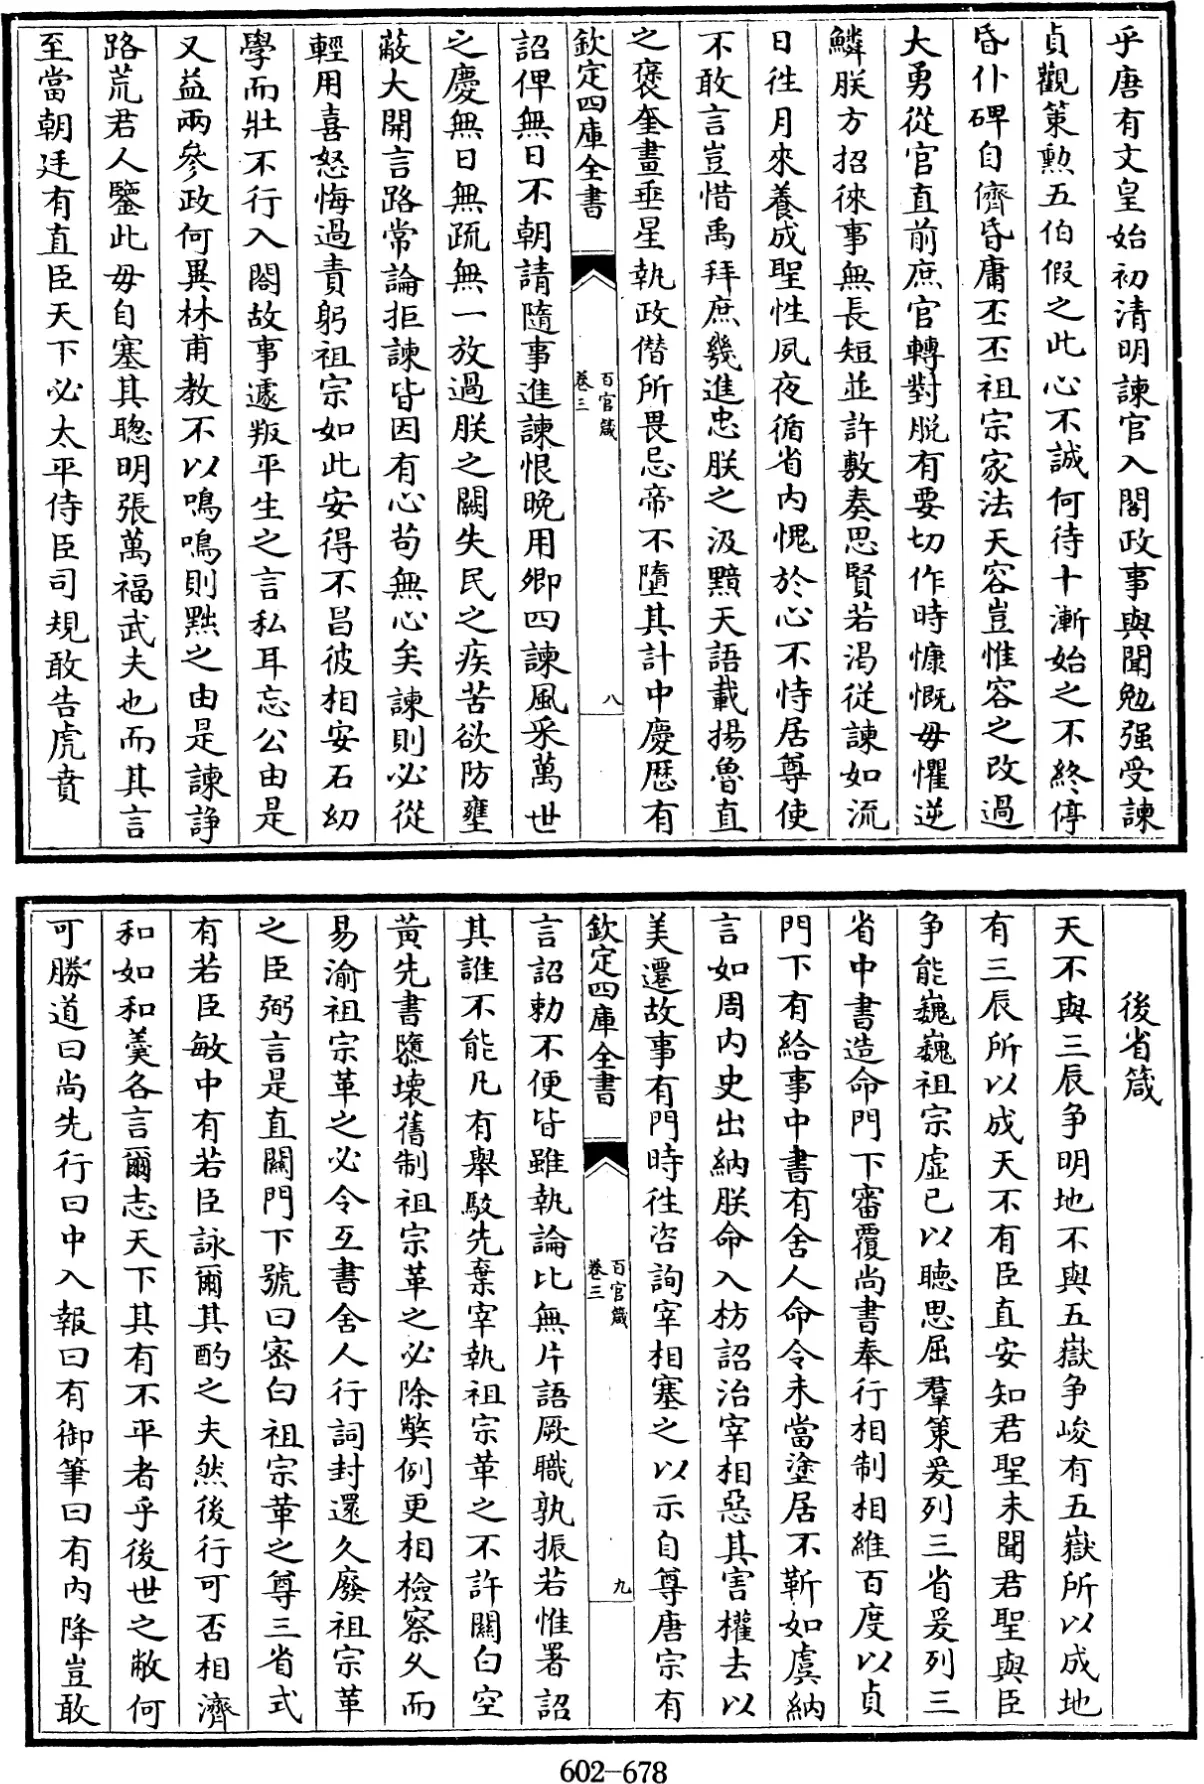 乎唐有文皇始初清明諫官入閤政事與聞勉强受諫
貞觀策勲五伯假之此心不誠何待十漸始之不終停
昏仆碑自儕昏庸丕丕祖宗家法天容豈惟容之改過
大勇從官直前庶官轉對脱有要切作時慷慨毋懼逆
鱗朕方招徠事無長短並許敷奏思賢若渴從諫如流
日往月來養成聖性夙夜循省内愧於心不恃居尊使
不敢言豈惜禹拜庶幾進忠朕之汲黯天語載揚魯直
之褒奎畫垂星執政僭所畏忌帝不墮其計中慶厯有
欽定四庫全書
百官箴
卷三
八
詔俾無日不朝請隨事進諫恨晚用卿四諫風采萬世
之慶無日無疏無一放過朕之闕失民之疾苦欲防壅
蔽大開言路常論拒諫皆因有心苟無心矣諫則必從
輕用喜怒悔過責躬祖宗如此安得不昌彼相安石幼
學而壯不行入閤故事遽叛平生之言私耳忘公由是
又益兩參政何異林甫教不以鳴鳴則黜之由是諫諍
路荒君人鑒此毋自塞其聰明張萬福武夫也而其言
至當朝廷有直臣天下必太平侍臣司規敢告虎賁
後省箴
天不與三辰争明地不與五嶽争峻有五嶽所以成地
有三辰所以成天不有臣直安知君聖未聞君聖與臣
争能巍巍祖宗虚已以聽思屈羣策爰列三省爰列三
省中書造命門下審覆尚書奉行相制相維百度以貞
門下有給事中書有舍人命令未當塗居不靳如虞納
言如周内史出納朕命入枋詔治宰相惡其害權去以
美遷故事有門時往咨詢宰相塞之以示自尊唐宗有
欽定四庫全書
百官箴
卷三
九
言詔勅不便皆雖執論比無片語厥職孰振若惟署詔
其誰不能凡有舉駁先棄宰執祖宗革之不許關白空
黄先書隳壞舊制祖宗革之必除獘例更相檢察久而
易渝祖宗革之必令互書舍人行詞封還久廢祖宗革
之臣弼言是直關門下號曰密白祖宗革之尊三省式
有若臣敏中有若臣詠爾其酌之夫然後行可否相濟
和如和羹各言爾志天下其有不平者乎後世之敝何
可勝道曰尚先行曰中入報曰有御筆曰有内降豈敢
602-678